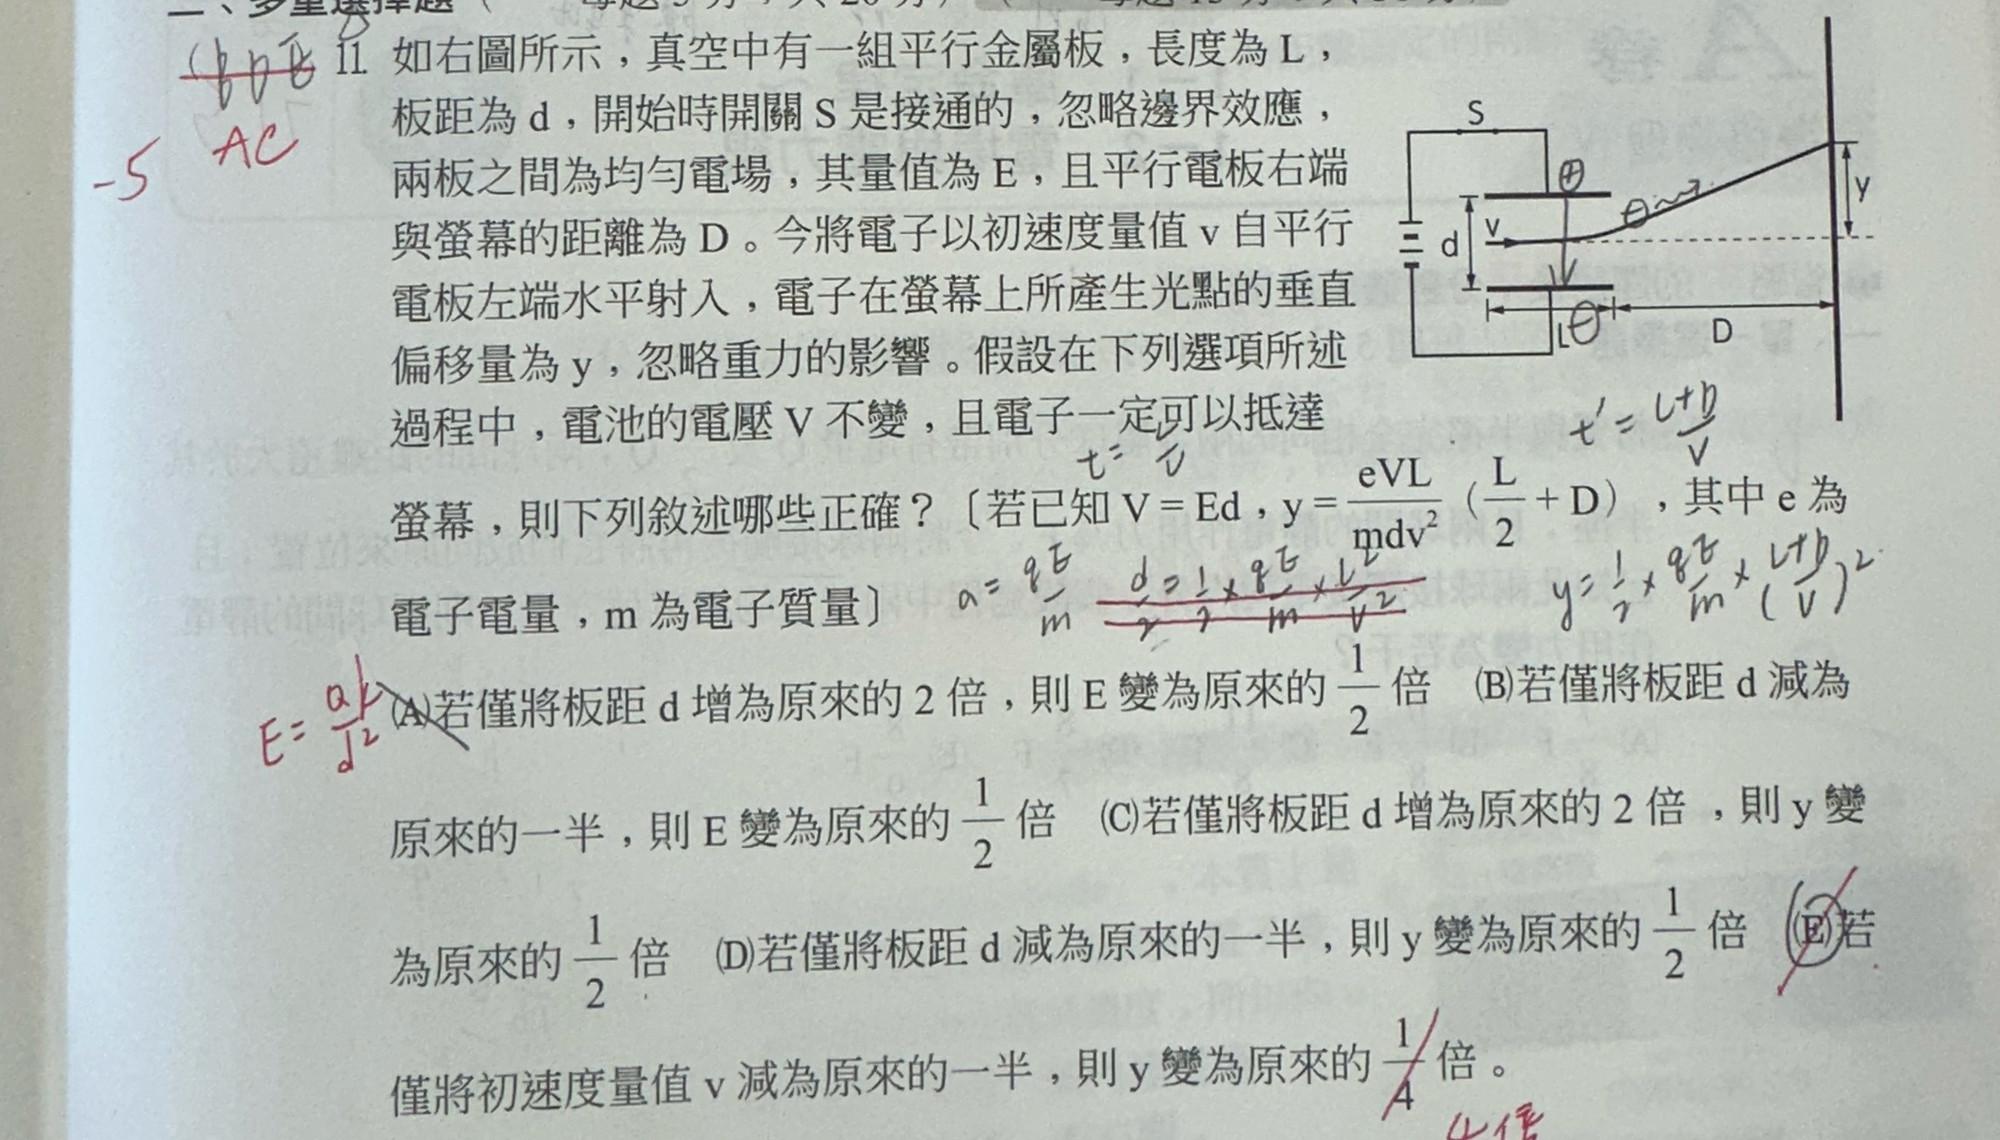 二、多重選擇題
(BDE 11. 如右圖所示，真空中有一組平行金屬板，長度為 L，
AC
-5
板距為 d，開始時開關 S 是接通的，忽略邊界效應，
兩板之間為均勻電場，其量值為 E，且平行電板右端
與螢幕的距離為 D。今將電子以初速度量值 v 自平行
電板左端水平射入，電子在螢幕上所產生光點的垂直
偏移量為 y，忽略重力的影響。假設在下列選項所述
過程中，電池的電壓 V 不變，且電子一定可以抵達
螢幕，則下列敘述哪些正確？〔若已知 V = Ed，y = eVL/mdv² (L/2 + D)，其中 e 為
電子電量，m 為電子質量〕
(A)若僅將板距 d 增為原來的 2 倍，則 E 變為原來的 1/2 倍 (B)若僅將板距 d 減為
原來的一半，則 E 變為原來的 1/2 倍 (C)若僅將板距 d 增為原來的 2 倍，則 y 變
為原來的 1/2 倍 (D)若僅將板距 d 減為原來的一半，則 y 變為原來的 1/2 倍 (E)若
僅將初速度量值 v 減為原來的一半，則 y 變為原來的 1/4 倍。
4倍
S
⊕
v
d
y
L
⊖
D
t' = L+D/v
t = L/v
a = qE/m
d/2 = 1/2 × qE/m × L²/v²
y = 1/2 × qE/m × (L+D/v)²